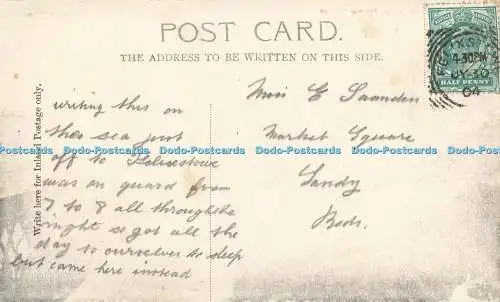 POST CARD.
THE ADDRESS TO BE WRITTEN ON THIS SIDE.
Write here for Inland Postage only.
writing this on
the sea just
off to Felixstowe
was on guard from
7 to 8 all through the
night so got all the
day to ourselves to sleep
but came here instead
Miss E Saunders
Market Square
Sandy
Beds.
4.30PM
JY
04
HALF PENNY
Dodo-Postcards Dodo-Postcards Dodo-Postcards Dodo-Postcards Dodo-Postcards Dodo-Postcards